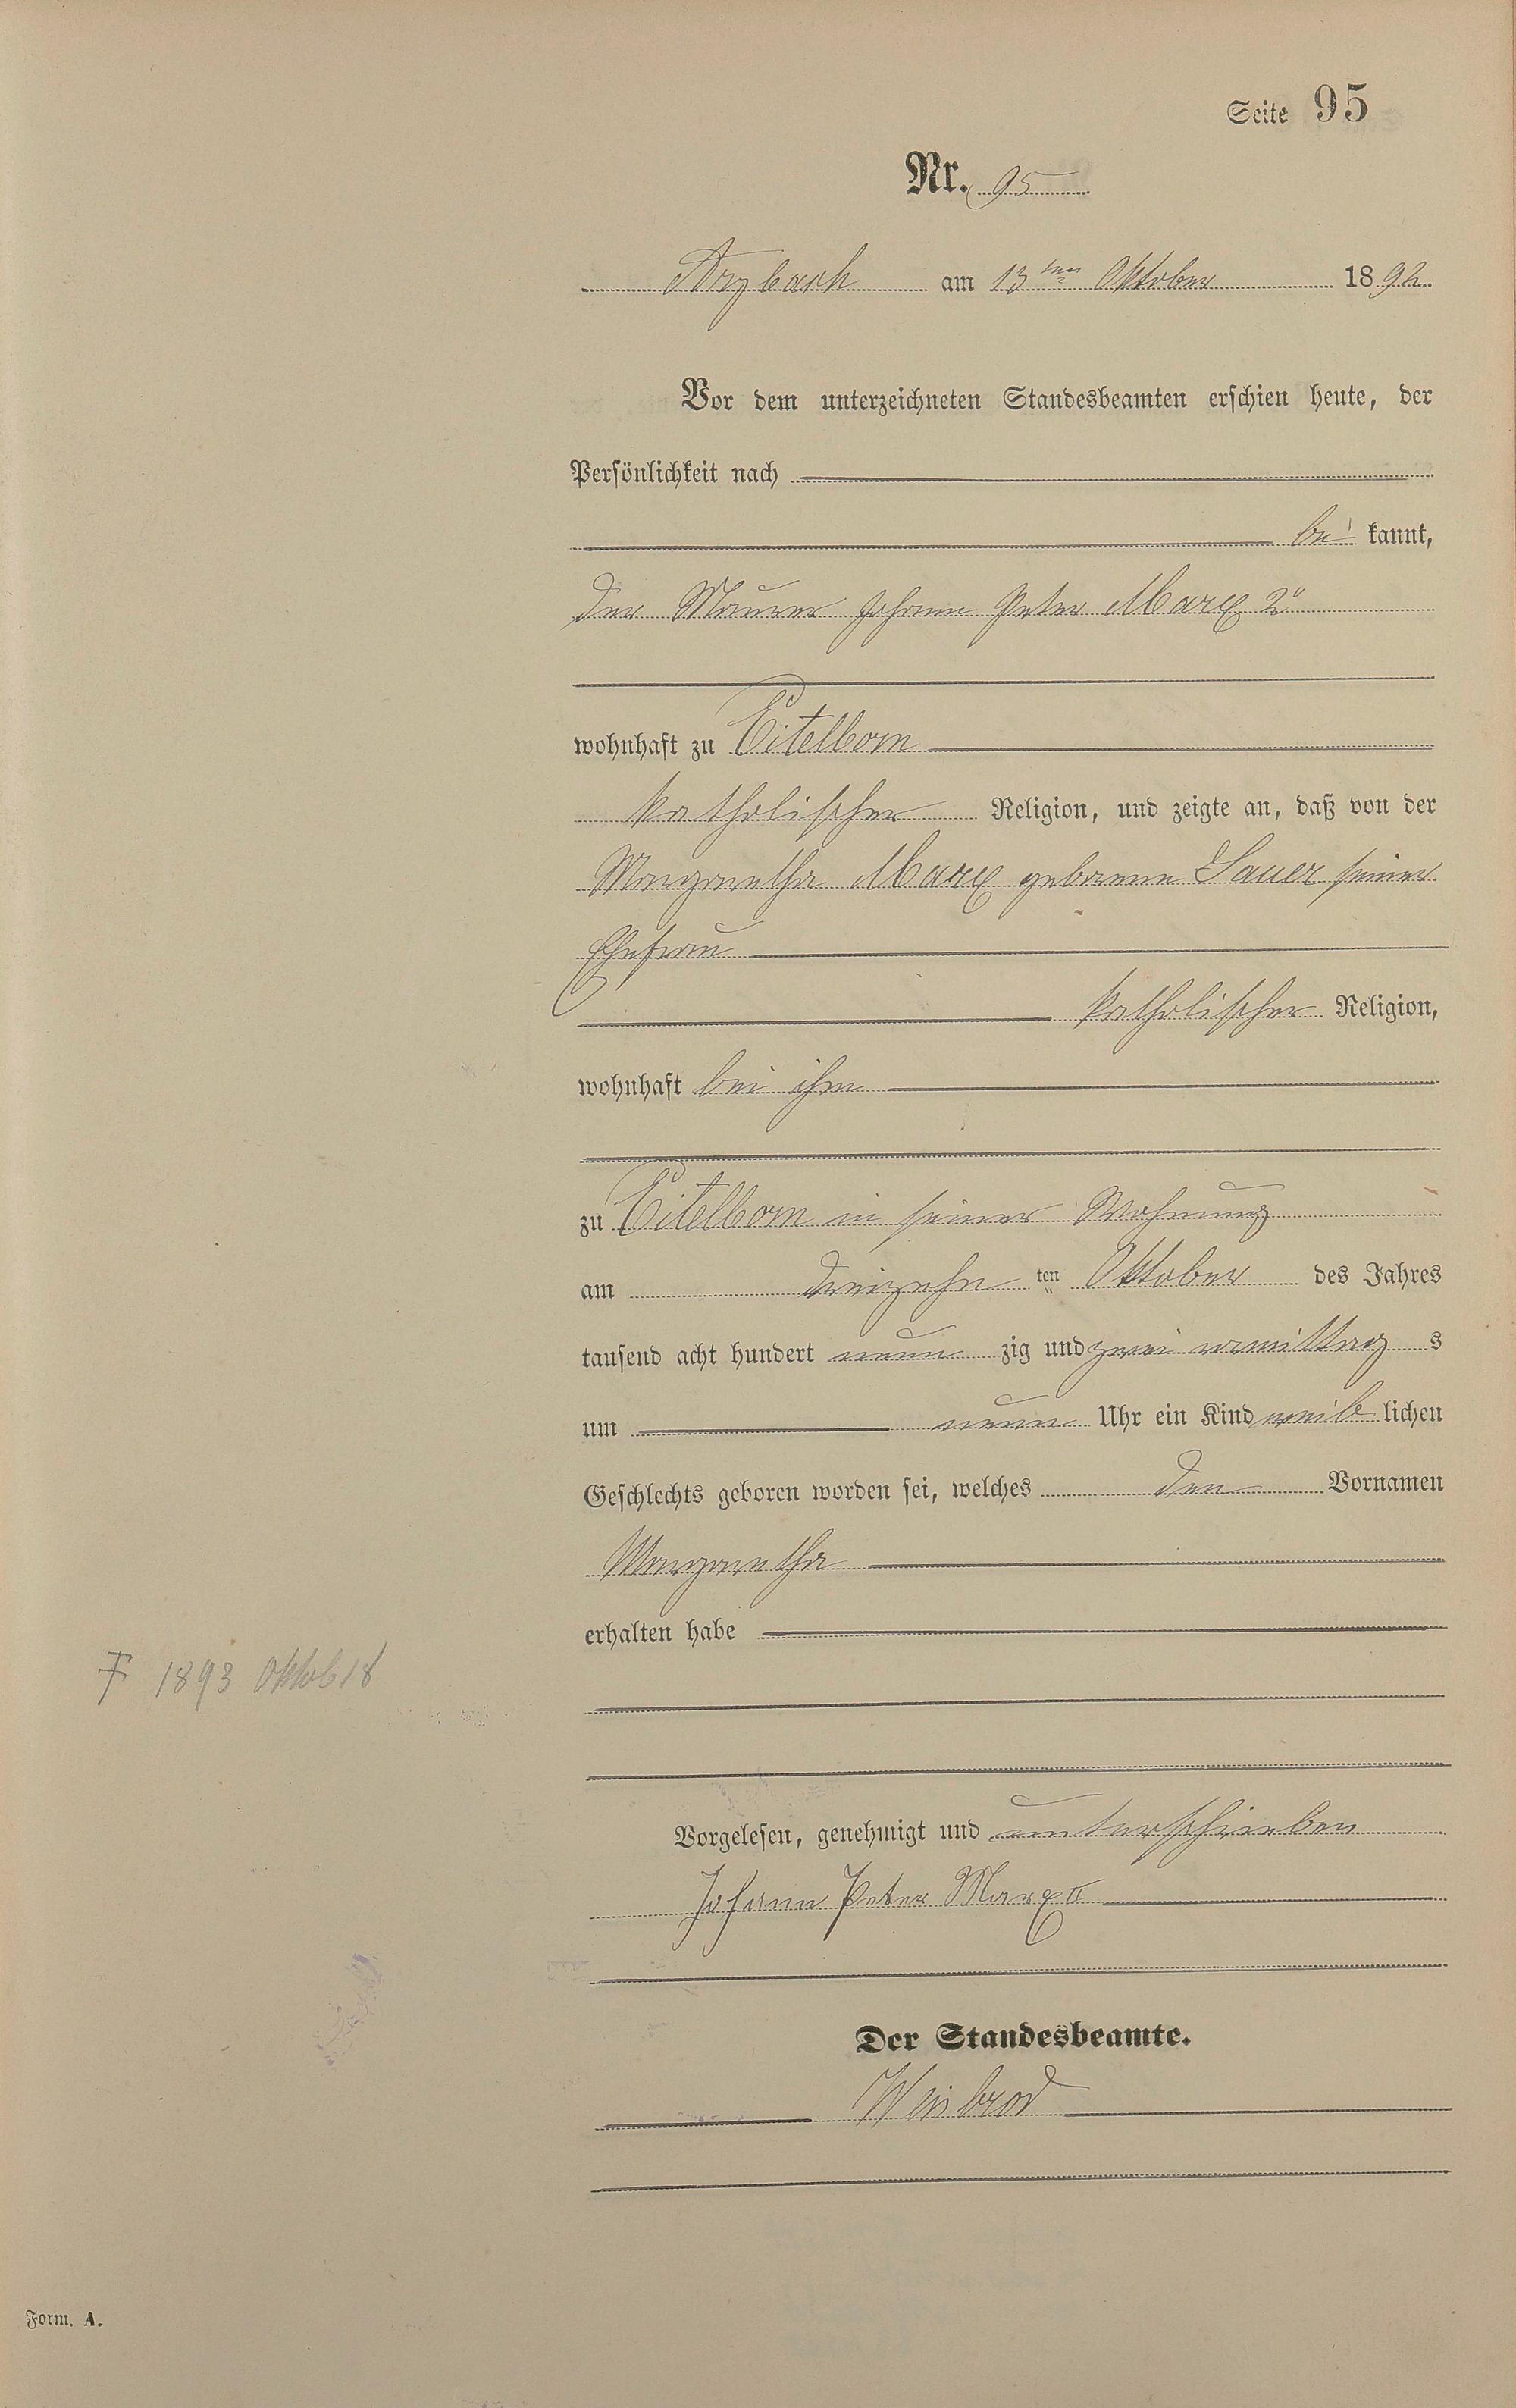 Seite 95
Nr. 95
Arzbach am 13ten Oktober 1892.
Vor dem unterzeichneten Standesbeamten erschien heute, der
Persönlichkeit nach
be kannt,
der Maurer Johann Peter Marx 2r
wohnhaft zu Eitelborn
katholischer Religion, und zeigte an, daß von der
Margaretha Marx geborene Sauer seiner
Ehefrau
katholischer Religion,
wohnhaft bei ihm
zu Eitelborn in seiner Wohnung
am dreizehn ten Oktober des Jahres
tausend acht hundert neun zig und zwei vormittag s
um neun Uhr ein Kind weib lichen
Geschlechts geboren worden sei, welches den Vornamen
Margaretha
erhalten habe
1893 Oktob 18
Vorgelesen, genehmigt und unterschrieben
Johann Peter Marx II
Der Standesbeamte.
Weisbrod
Form. A.